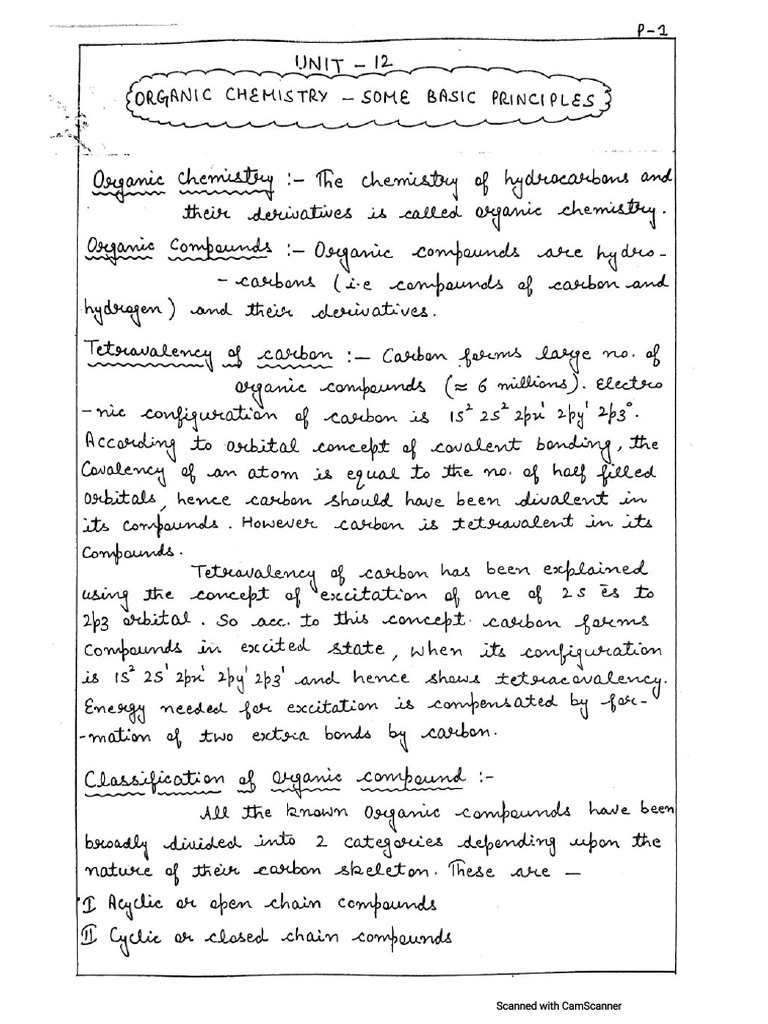 P-1
UNIT - 12
ORGANIC CHEMISTRY - SOME BASIC PRINCIPLES
Organic Chemistry :- The chemistry of hydrocarbons and
their derivatives is called organic chemistry.
Organic Compounds :- Organic compounds are hydro-
-carbons (i.e compounds of carbon and
hydrogen) and their derivatives.
Tetravalency of carbon :- Carbon forms large no. of
organic compounds (≈ 6 millions). Electro
-nic configuration of carbon is 1s² 2s² 2px¹ 2py¹ 2pz⁰.
According to orbital concept of covalent bonding, the
Covalency of an atom is equal to the no. of half filled
orbitals, hence carbon should have been divalent in
its compounds. However carbon is tetravalent in its
Compounds.
Tetravalency of carbon has been explained
using the concept of excitation of one of 2s ēs to
2pz orbital. So acc. to this concept carbon forms
compounds in excited state, when its configuration
is 1s² 2s¹ 2px¹ 2py¹ 2pz¹ and hence shows tetracovalency.
Energy needed for excitation is compensated by for-
-mation of two extra bonds by carbon.
Classification of organic compound :-
All the known organic compounds have been
broadly divided into 2 categories depending upon the
nature of their carbon skeleton. These are —
I Acyclic or open chain compounds
II Cyclic or closed chain compounds
Scanned with CamScanner